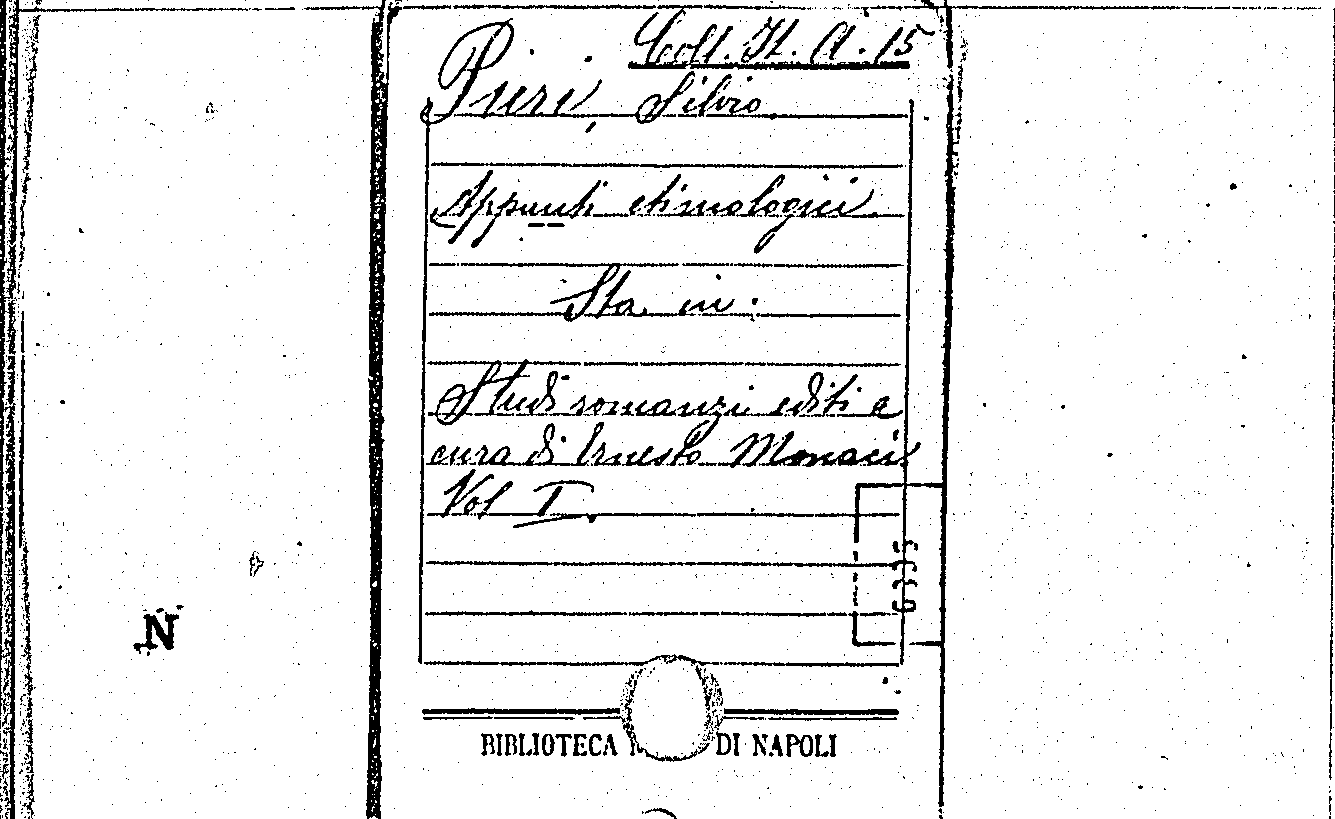 Coll. It. A. 15
Pieri, Silvio.
Appunti etimologici.
Sta in:
Studi romanzi editi a
cura di Ernesto Monaci
Vol I.
6335
N
BIBLIOTECA DI NAPOLI